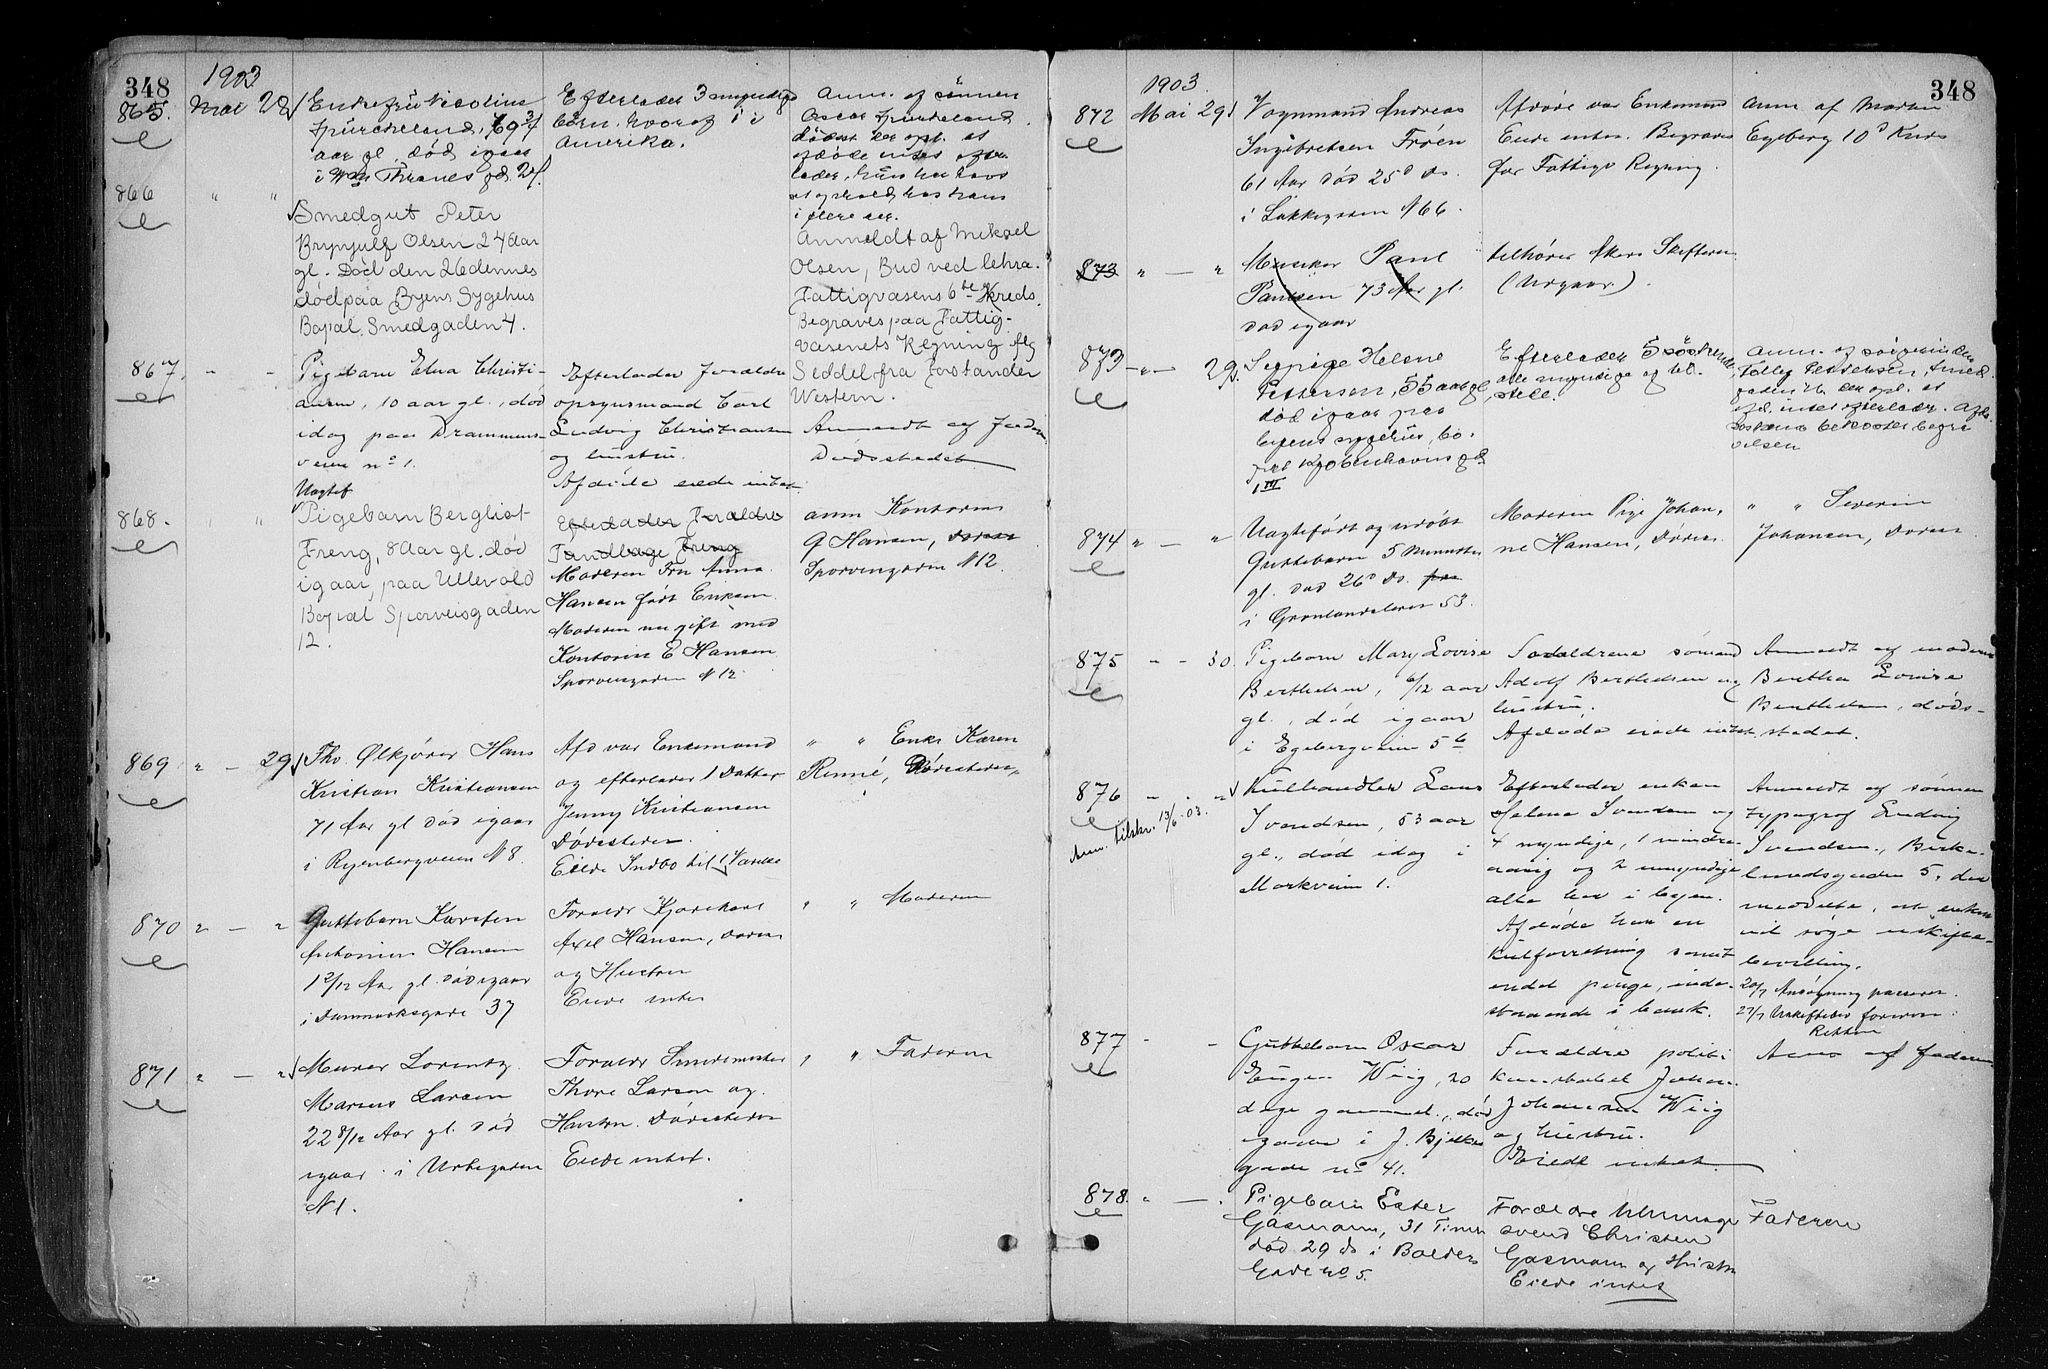 348
1903
865.
Mai 28
Enkefru Nicoline
aar gl. død
Efterlader 3 myndige
børn, hvoraf 1 i
Amerika.
Anm. af sønnen
Oscar
i flere aar.
866
" "
Smedgut Peter
Brynjulf Olsen 24 Aar
gl. Død den 26 dennes
død paa Byens Sygehus
Bopal. Smedgaden 4.
Anmeldt af Mikael
Olsen, Bud ved Chra.
Fattigvæsens 6te Kreds.
Begraves paa Fattig-
væsenets Regning flg
Seddel fra Forstander
Western.
867
- -
Pigebarn Elna Christi-
ansen, 10 aar gl., død
idag paa Drammens-
veien no 1.
Efterlader Forældre
opsynsmand Carl
Ludvig Christiansen
og hustru.
Afdøde eiede intet.
Anmeldt af Faderen
Dødsstedet
868.
" "
Uægtef
Pigebarn Bergliot
Freng, 8 Aar gl. død
igaar, paa Ullevold
Bopæl Sporveisgaden
12.
Efterlader Forældre
Tandlæge Freng
Moderen Fru Anna
Hansen født Eriksen.
Moderen nu gift med
Kontorist E Hansen
Sporveisgaden N 12.
anm Kontorist
G Hansen,
Sporveisgaden N 12.
869
" - 29
Fhv. Ølkjører Hans
Kristian Kristiansen
71 Aar gl død igaar
i Ryenbergveien N 8.
Afd var Enkemand
og efterlader 1 Datter
Jenny Kristiansen
Dødsstedet.
Eiede Indbo til
" " Enke Karen
Rinné, Dødsstedet,
870
" - "
Guttebarn Karsten
Antonius Hansen
1 2/12 Aar gl. død igaar
i Danmarksgade 37
Foræld Kjørekarl
Axel Hansen, døren
og Hustru
Eiede intet
" " Moderen
871
" - "
Murer Lorentz
Marius Larsen
22 8/12 Aar gl. død
igaar i Urtegaden
N 1.
Foræld Smedemester
Thore Larsen og
Hustru. Dødsstedet
Eiede intet.
" " Faderen
348
1903.
872
Mai 29
Vognmand Andreas
Ingebretsen Frøen
61 Aar død 25d ds.
i Lakkegaden N 66.
Afdøde var Enkemand
Eiede intet. Begraves
for Fattigv Regning.
Anm af Morten
Egeberg 10d Kreds
873
" - "
Musiker Paul
Paulsen 73 Aar gl.
død igaar
tilhører Akers Skifteret
873
" - 29
Sypige Helene
Pettersen, 55 aar gl
død igaar paa
byens sygehus, bo-
pæl Kjøbenhavnsgd
1 III
Efterlader 5 søskende,
alle myndige og til-
stede.
afd. intet efterlader.
874
" - "
Uægtefødt og udøbt
Guttebarn 5 Minutter
gl. død 26d ds.
i Grønlandsleret 53.
Moderen Pige Johan-
ne Hansen, Døren
" " Severin
Johansen, Døren
875
- - 30
Pigebarn Mary Lovise
Berthelsen, 6/12 aar
gl., død igaar
i Egebergveien 5b
Forældrene sømand
Adolf Berthelsen og
hustru.
Afdøde eiede intet
Anmeldt af moderen
Berthea Lovise
Berthelsen, døds-
stedet.
876
- - "
Anm. tilskr. 13/6 03.
Kulhandler Lars
Svendsen, 53 aar
gl., død idag i
Markveien 1.
Efterlader enken
Helene Svendsen og
4 myndige, 1 mindre-
aarig og 2 umyndige
alle her i byen.
Afdøde har en
kulforretning samt
endel penge, inde-
staaende i bank.
Anmeldt af sønnen
typograf Ludvig
Svendsen, Birke-
lundsgaden 5, der
meddelte, at enken
vil søge uskifte-
bevilling.
20/7 Ansøgning passeret.
27/7 Uskiftebev foreviist
Retten
877
- -
Guttebarn Oscar
Eugen Wiig, 20
dage gammel., død
igaar i J. Bjelkes
gade no 41.
Forældre politi-
konstabel Johan
Johansen Wiig
og hustru.
Eiede intet
Anm af faderen
878.
" - .
Pigebarn Ester
Gasmann, 31 Timer
død 29 ds i Balders
Gade No 5.
Forældre
svend Christen
Gasmann og Hustru
Eiede intet
Faderen